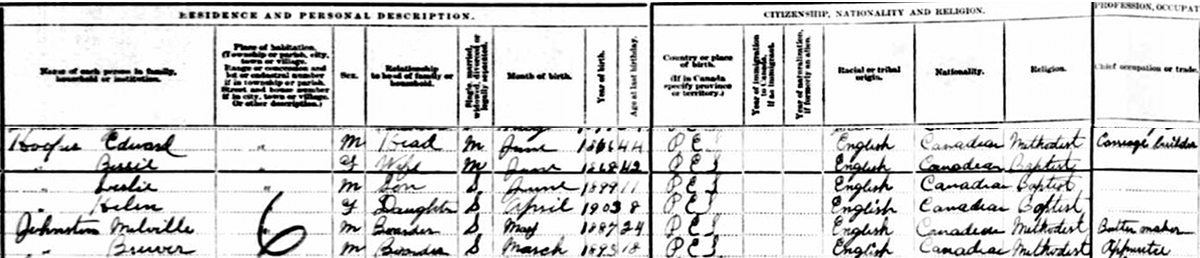 RESIDENCE AND PERSONAL DESCRIPTION. CITIZENSHIP, NATIONALITY AND RELIGION. PROFESSION, OCCUPAT
Name of each person in family, household or institution.
Place of habitation. (Township or parish, city, town or village. Range or concession and lot or cadastral number in township or parish. Street and house number if in city, town or village. Or other description.)
Sex.
Relationship to head of family or household.
Single, married, widowed, divorced or legally separated.
Month of birth.
Year of birth.
Age at last birthday.
Country or place of birth. (If in Canada specify province or territory.)
Year of immigration to Canada, if an immigrant.
Year of naturalization, if formerly an alien.
Racial or tribal origin.
Nationality.
Religion.
Chief occupation or trade.
Edward " M Head M June 1866 44 P E I English Canadian Methodist Carriage builder
" Bessie " F Wife M June 1868 42 P E I English Canadian Baptist
" Leslie " M Son S June 1899 11 P E I English Canadian Baptist
" Helen F Daughter S April 1903 8 P E I English Canadian Baptist
Johnston Melville 6 M Boarder S May 1887 24 P E I English Canadian Methodist Butter maker
" M Boarder S March 1893 18 P E I English Canadian Methodist